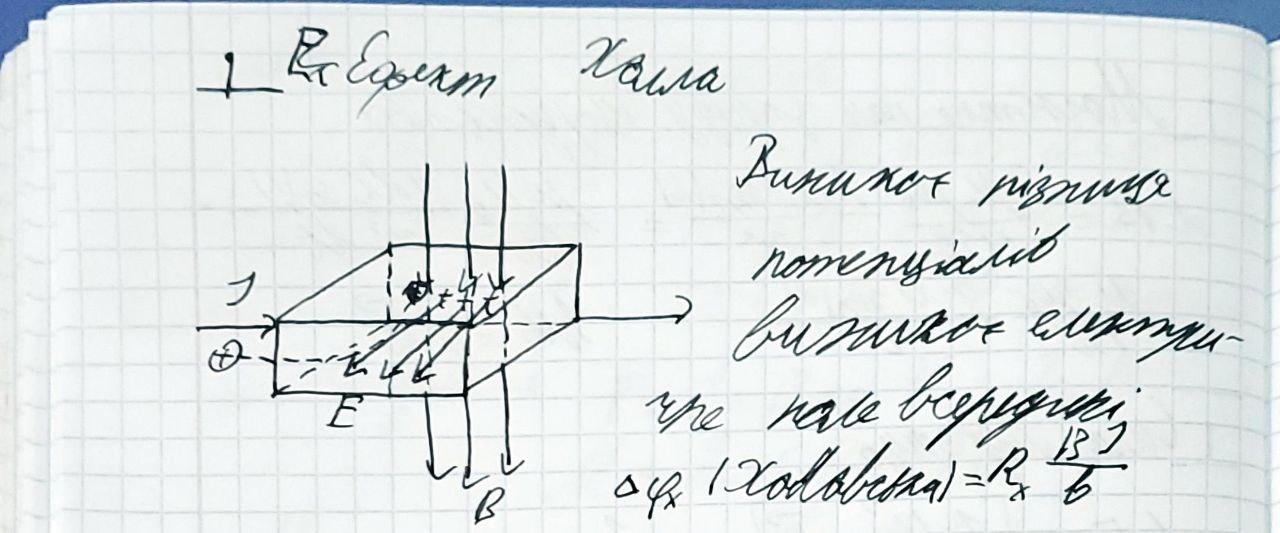 Ефект Холла
Виникає різниця
потенціалів
виникає електри-
чне поле всередині
Δφₓ (Холловська) = Rₓ BJ/b
J
+ + +
⊕
E
B